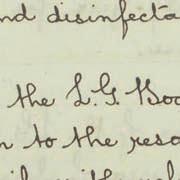 nd disinfecta
the L.G. Boa
n to the reso